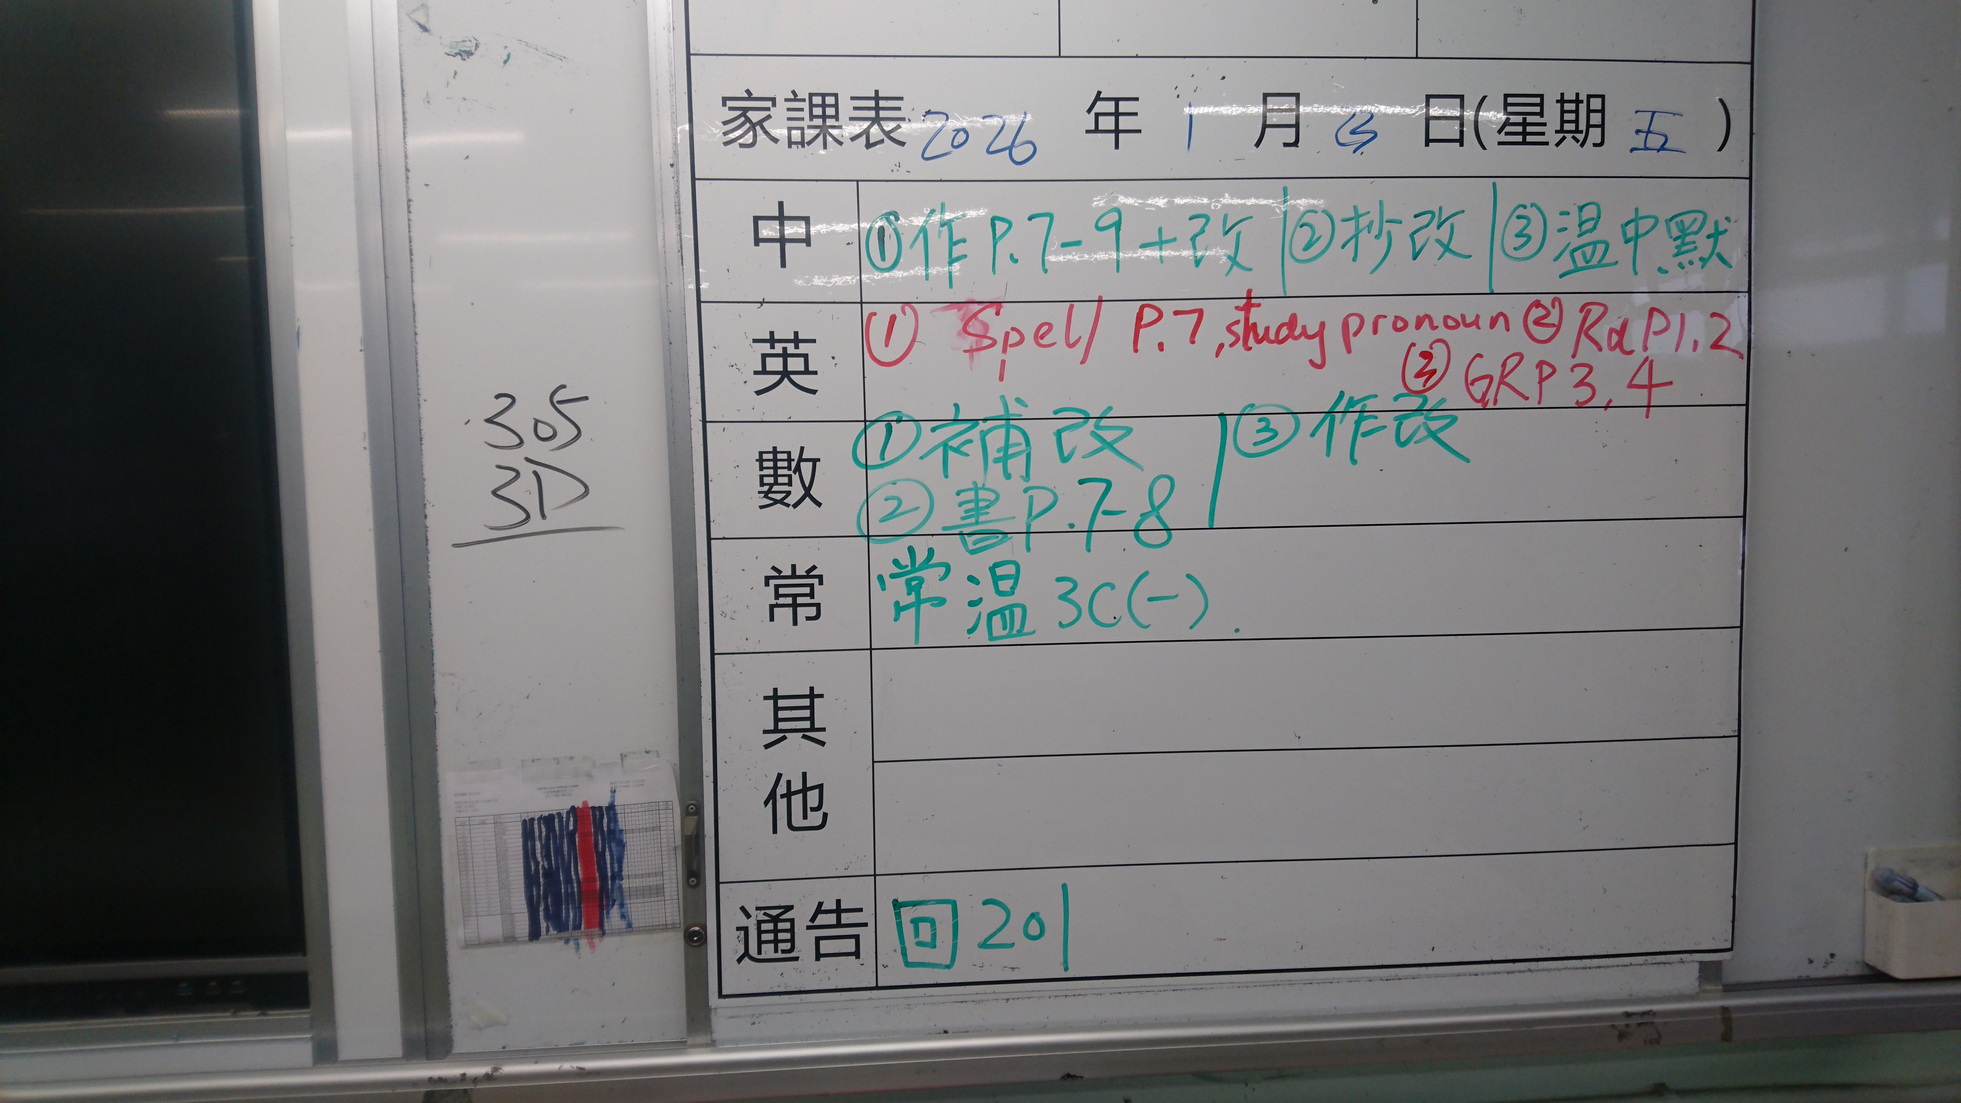 家課表 2026 年 1 月 23 日(星期 五 )
中 ①作P.7-9+改 | ②抄改 | ③温中默
英 ① Spell P.7, study pronoun ② Rd P1.2
③ GRP 3, 4
數 ①補改 | ③作改
②書P.7-8
常 常温 3C(一).
其他
通告 回 201
305
3D